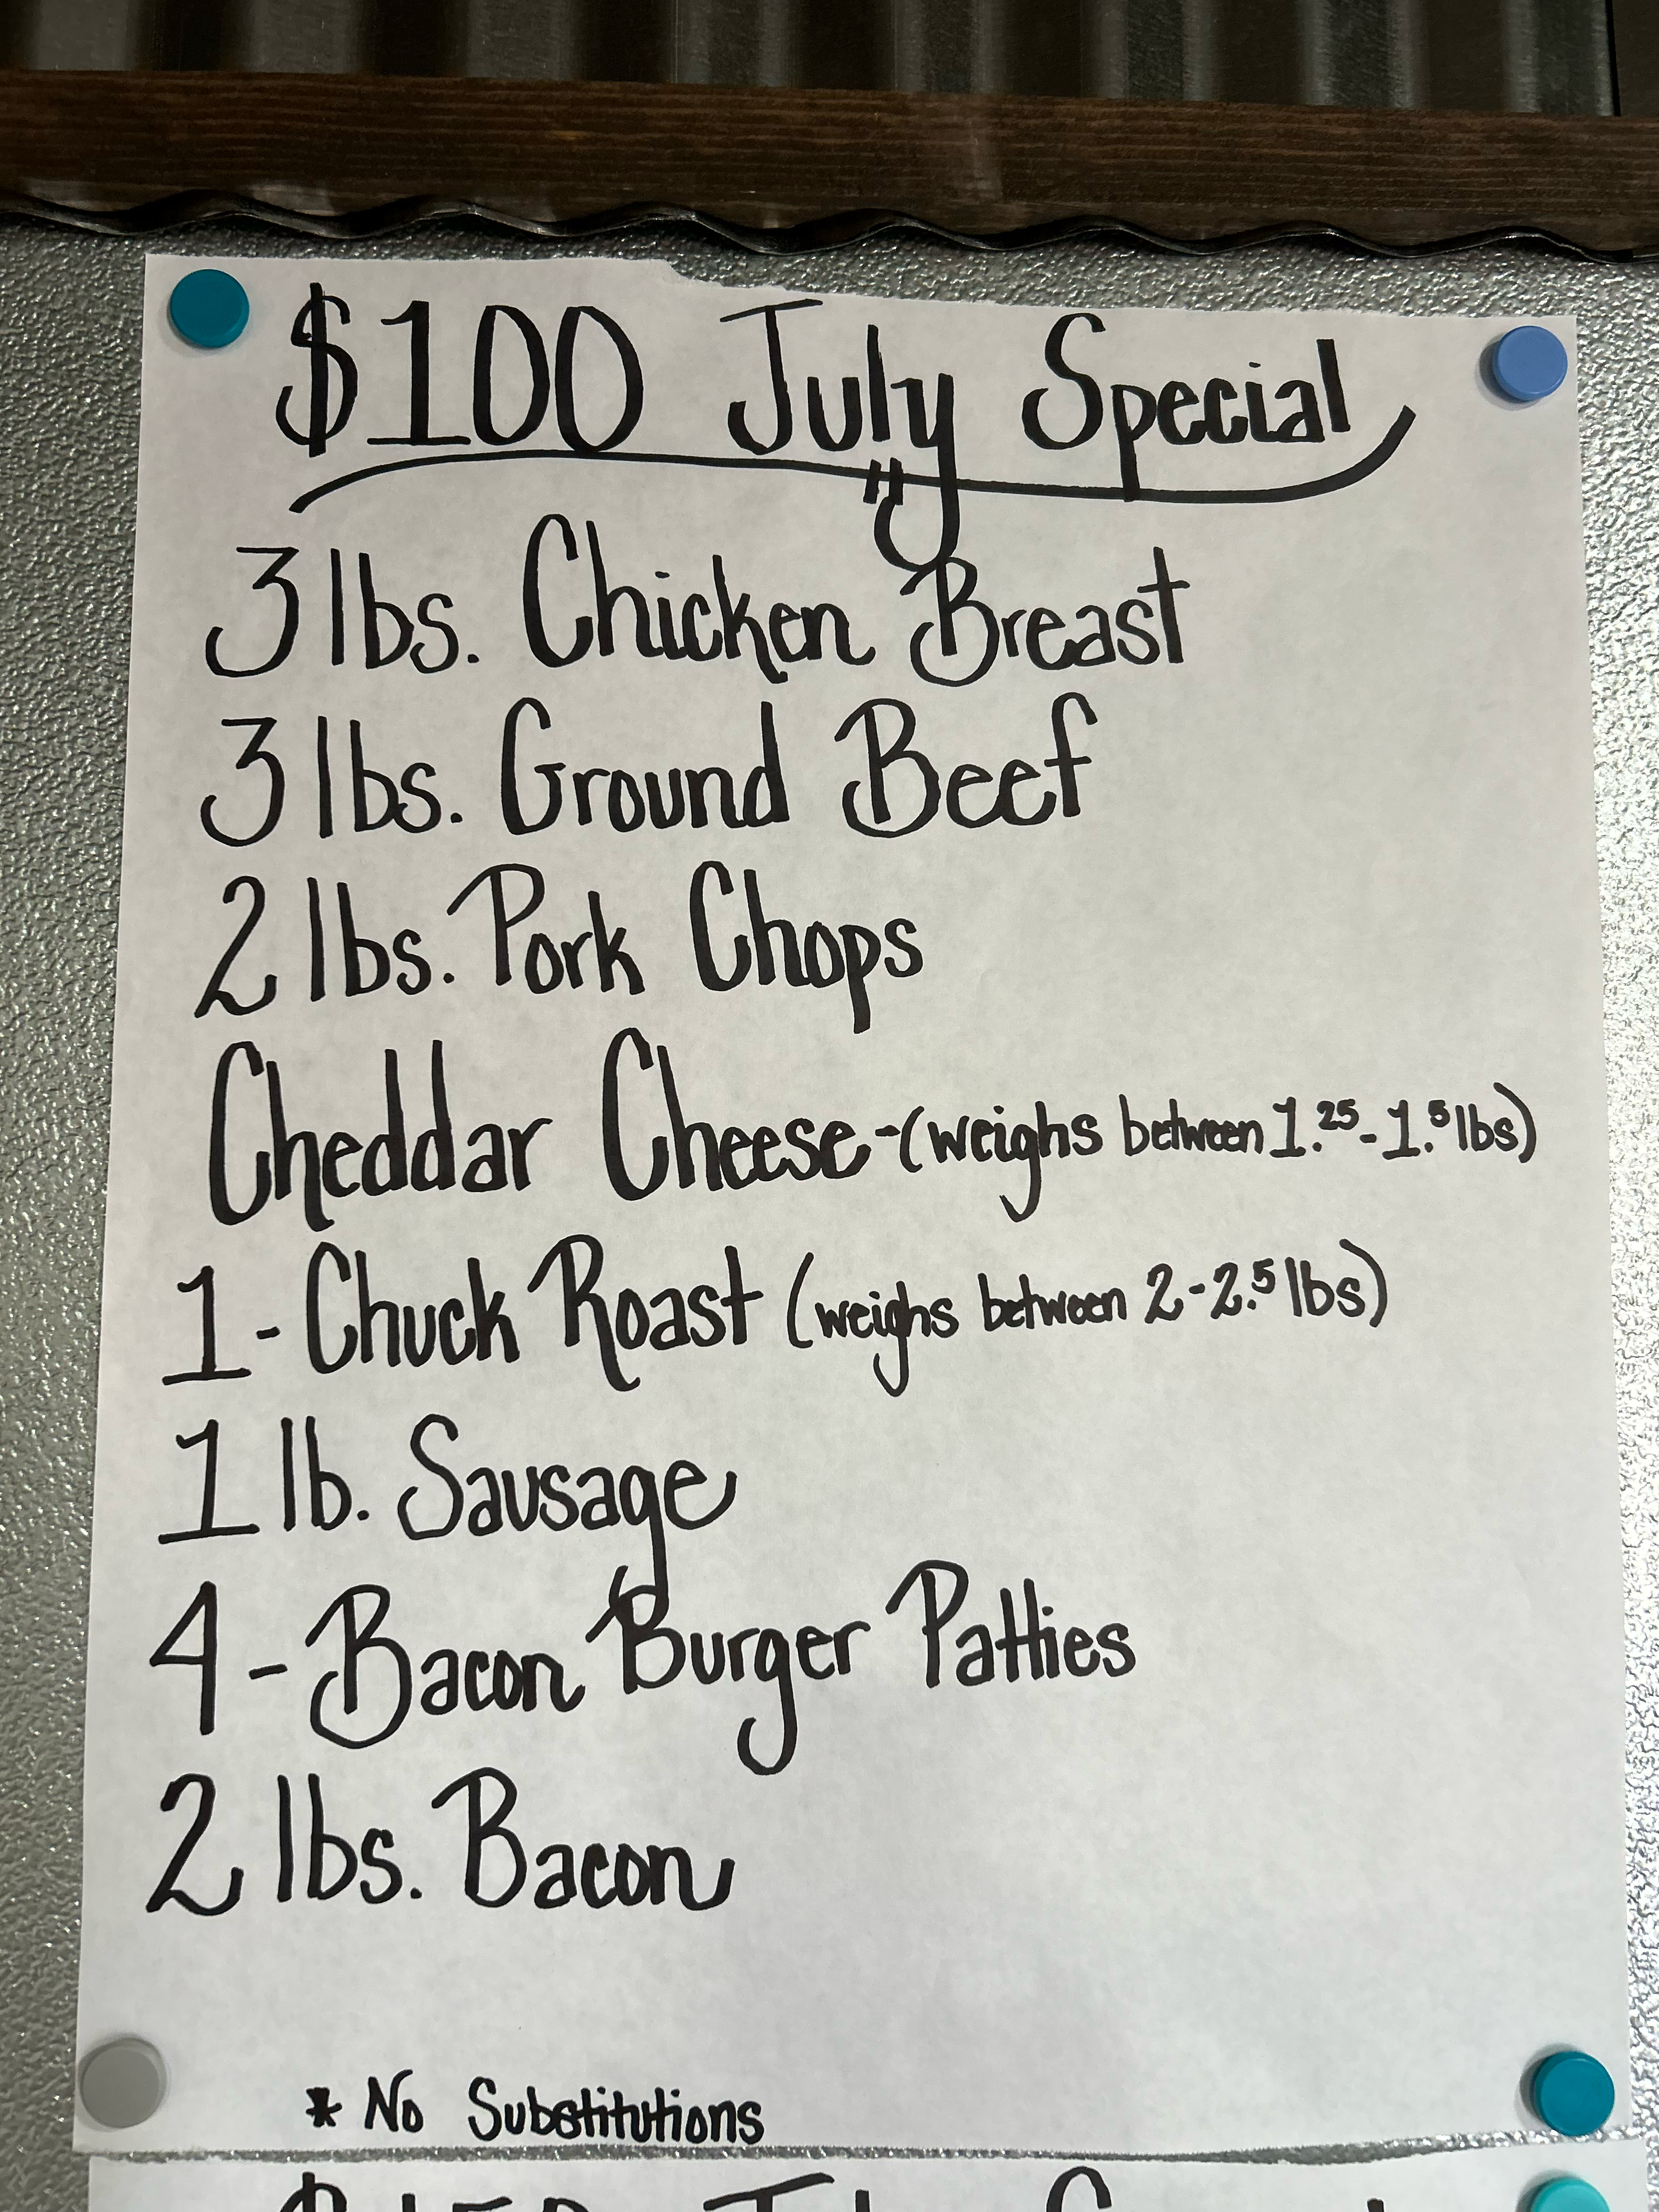 $100 July Special
3 lbs. Chicken Breast
3 lbs. Ground Beef
2 lbs. Pork Chops
Cheddar Cheese-(weighs between 1.25-1.5 lbs)
1- Chuck Roast (weighs between 2-2.5 lbs)
1 lb. Sausage
4- Bacon Burger Patties
2 lbs. Bacon
* No Substitutions